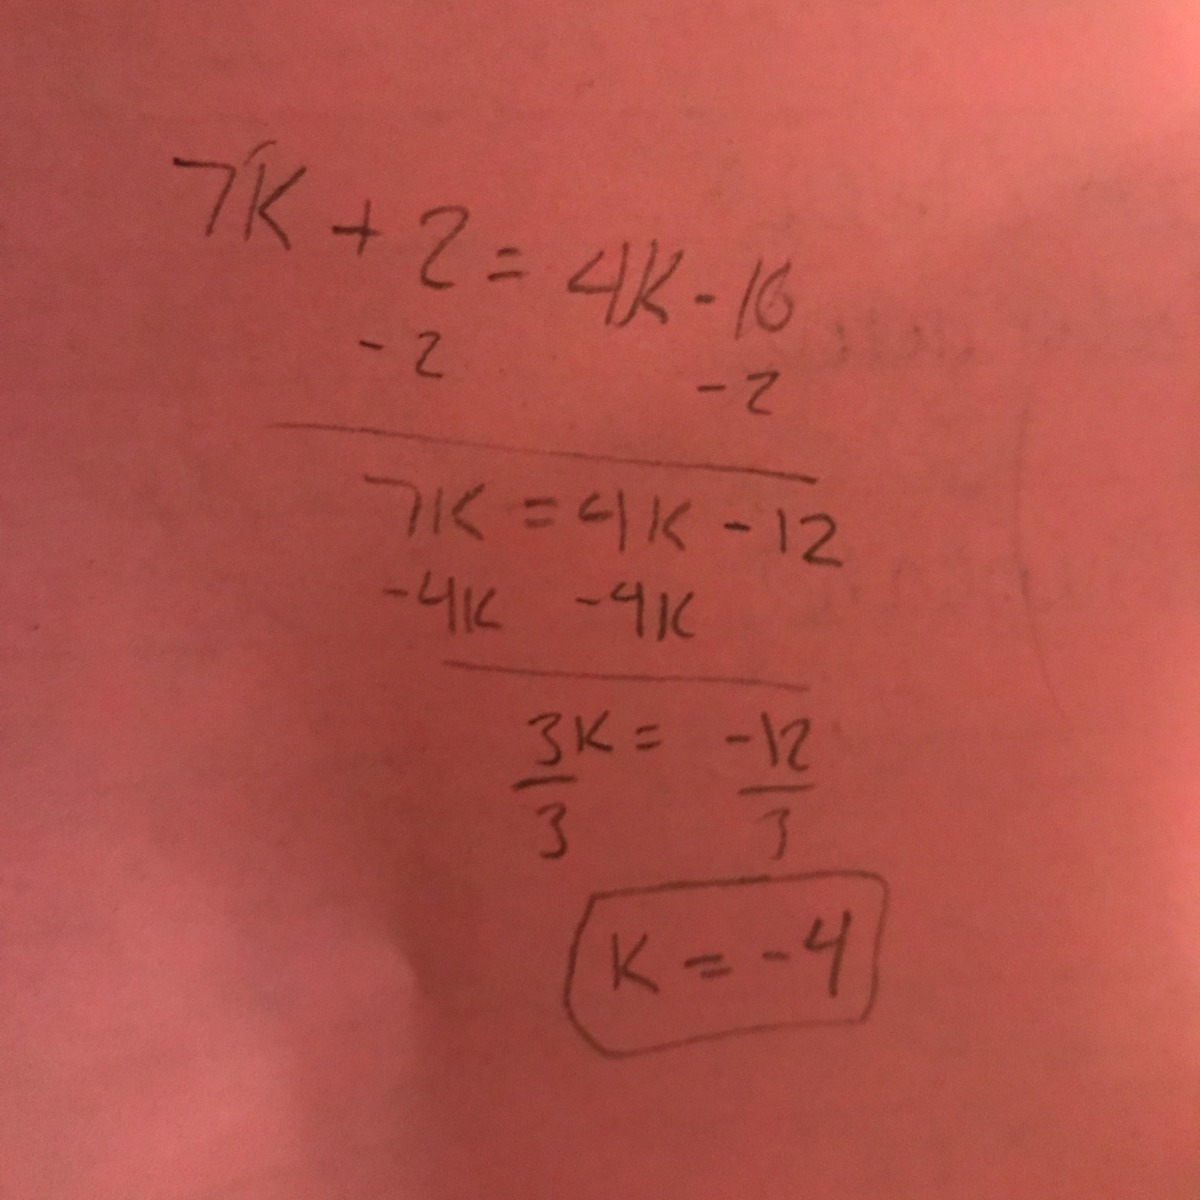 7K + 2 = 4K - 10
- 2 - 2
7K = 4K - 12
-4K -4K
3K = -12
3 3
K = -4